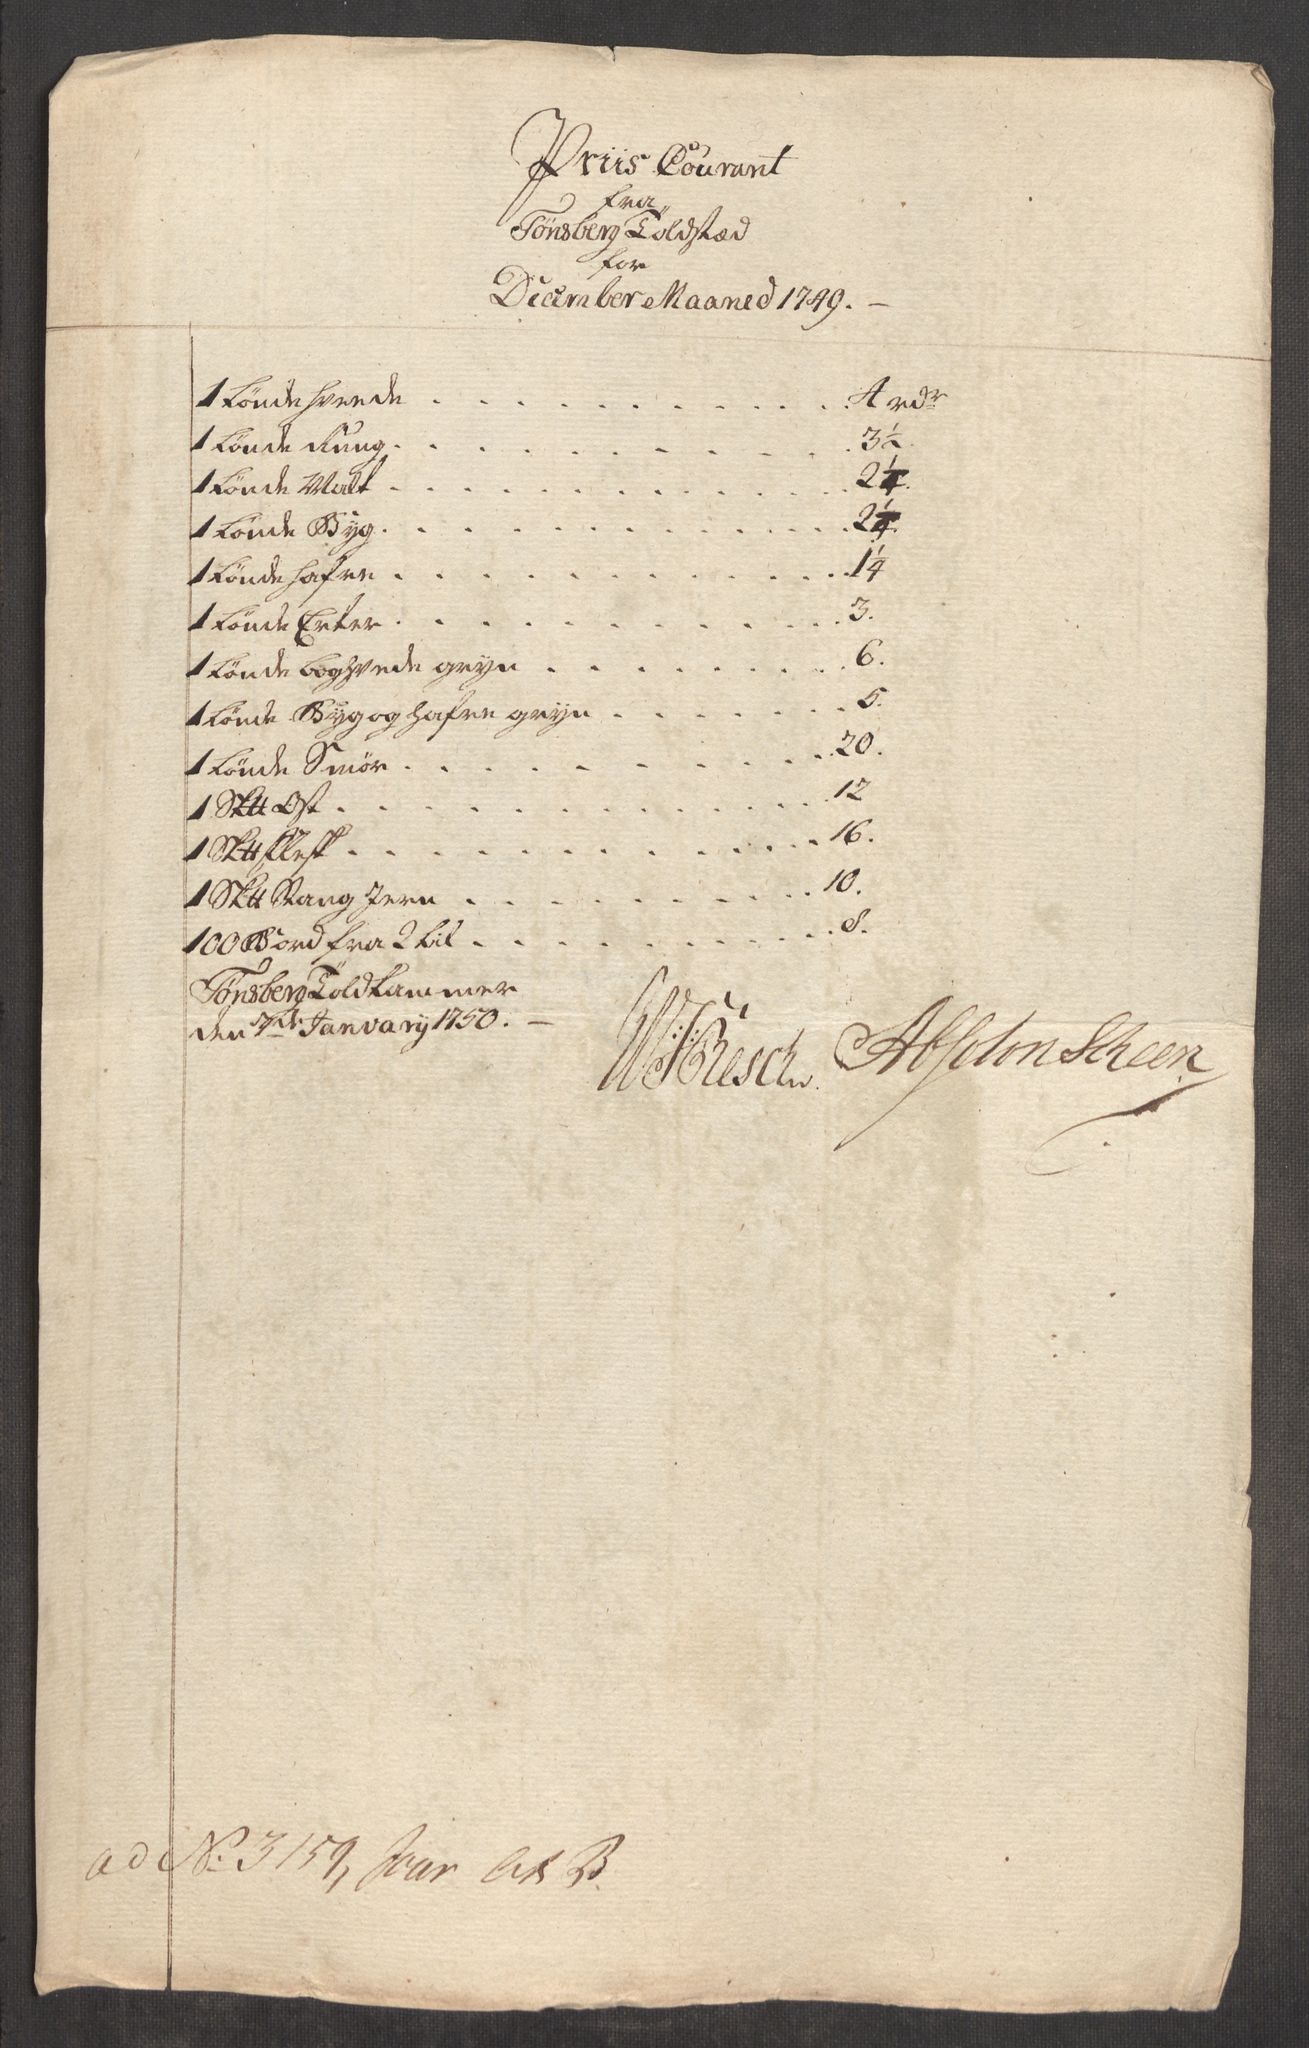 Priis Courant
fra
Tønsberg Toldstæd
for
December Maaned 1749. –
1 tønde hveede . . . . . . . . . . . . 4 rdr
1 tønde Rung . . . . . . . . . . . . 3½.
1 tønde Malt . . . . . . . . . . . . 2¼.
1 tønde Byg . . . . . . . . . . . . 2¼.
1 tønde hafre . . . . . . . . . . . . 1¼
1 tønde Erter . . . . . . . . . . . . 3.
1 tønde boghvede gryn . . . . . . . . 6.
1 tønde Byg og hafre gryn . . . . . . 5.
1 tønde Smör . . . . . . . . . . . . 20.
1 Sk℔ Ost . . . . . . . . . . . . 12
1 Sk℔ flesk . . . . . . . . . . . . 16.
1 Sk℔ Stang Jern . . . . . . . . . . 10.
100 Bord fra 2 til . . . . . . . . . . 8.
Tønsberg Toldkammer
den 7de January 1750. –
Röesch. Absolon Scheen
ad No. 3159, Litr B.